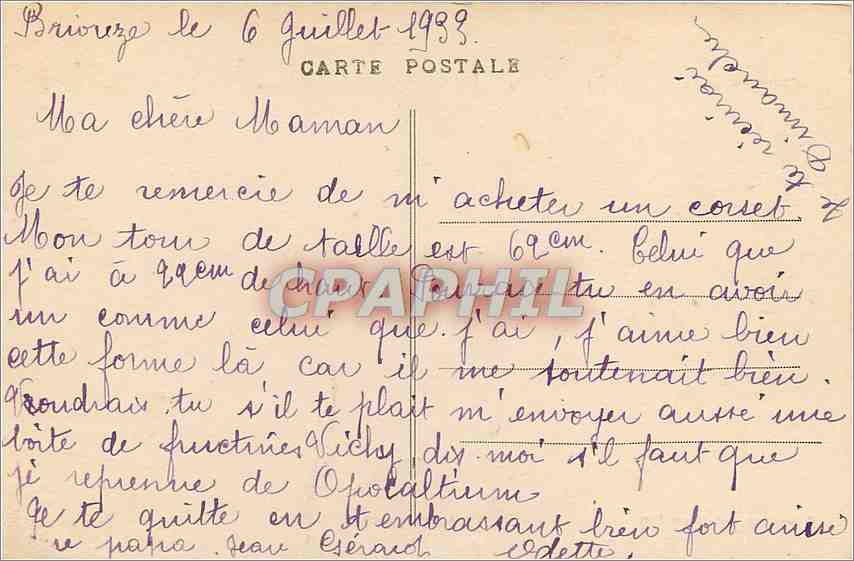 Briouze le 6 Juillet 1933.
CARTE POSTALE
Je te récrirai
Dimanche.
Ma chère Maman
Je te remercie de m'acheter un corset.
Mon tour de taille est 69cm. Celui que
j'ai à 22cm de haut. Pourrais tu en avoir
un comme celui que j'ai, j'aime bien
cette forme là car il me soutenait bien.
Voudrais tu s'il te plait m'envoyer aussi une
boite de fructines Vichy dis-moi s'il faut que
je reprenne de Opocaltium
Je te quitte en t'embrassant bien fort ainsi
papa. Jean Gérard Odette.
CPAPHIL